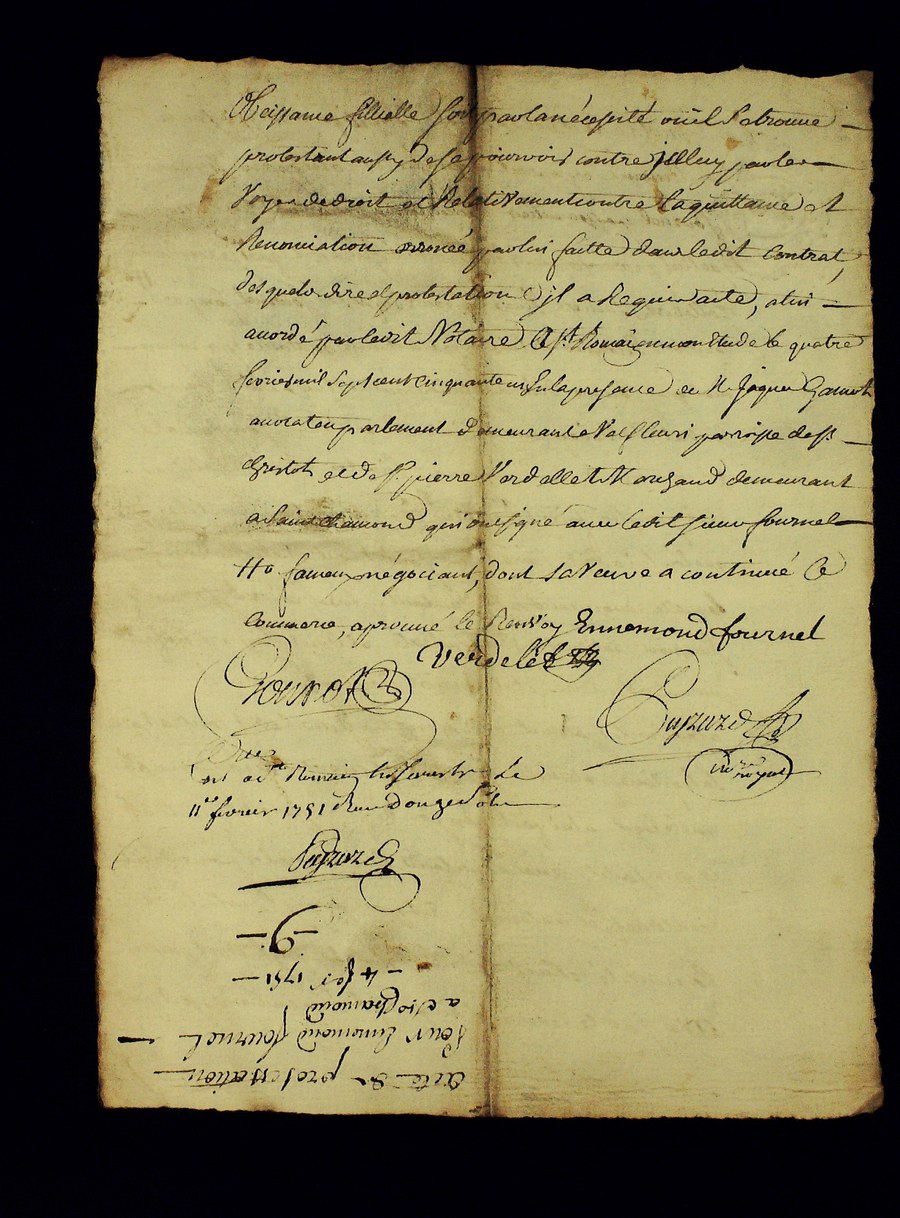 obeissance fillialle soit par la nécessité ou il se trouve
protestant aussy de se pourvoir contre icelluy par les
voyes de droit et Relativement contre la quittance et
Renonciation erronée par luy faitte dans ledit Contrat,
desquels dire et protestation il a Requis acte, a lui
accordé par ledit Notaire a St Romain en mon Etude le quatre
fevrier mil sept cent cinquante un En la presance de Me Jaques Gamot
avocat en parlement demeurant a Valfleuri parroisse de St
Christot et de Sr pierre Verdellet Marchand demeurant
a Saint chamond qui ont signé avec ledit sieur fournel
fameux négociant, dont sa Veuve a continué Ce
Commerce, aprouvé le Renvoy Ennemond fournel
Verdelet
not Royal
le
11e fevrier 1751 Reçu Douze sols
acte de protestation
Pour Ennemond fournel
a St Chamond
4 fev. 1751